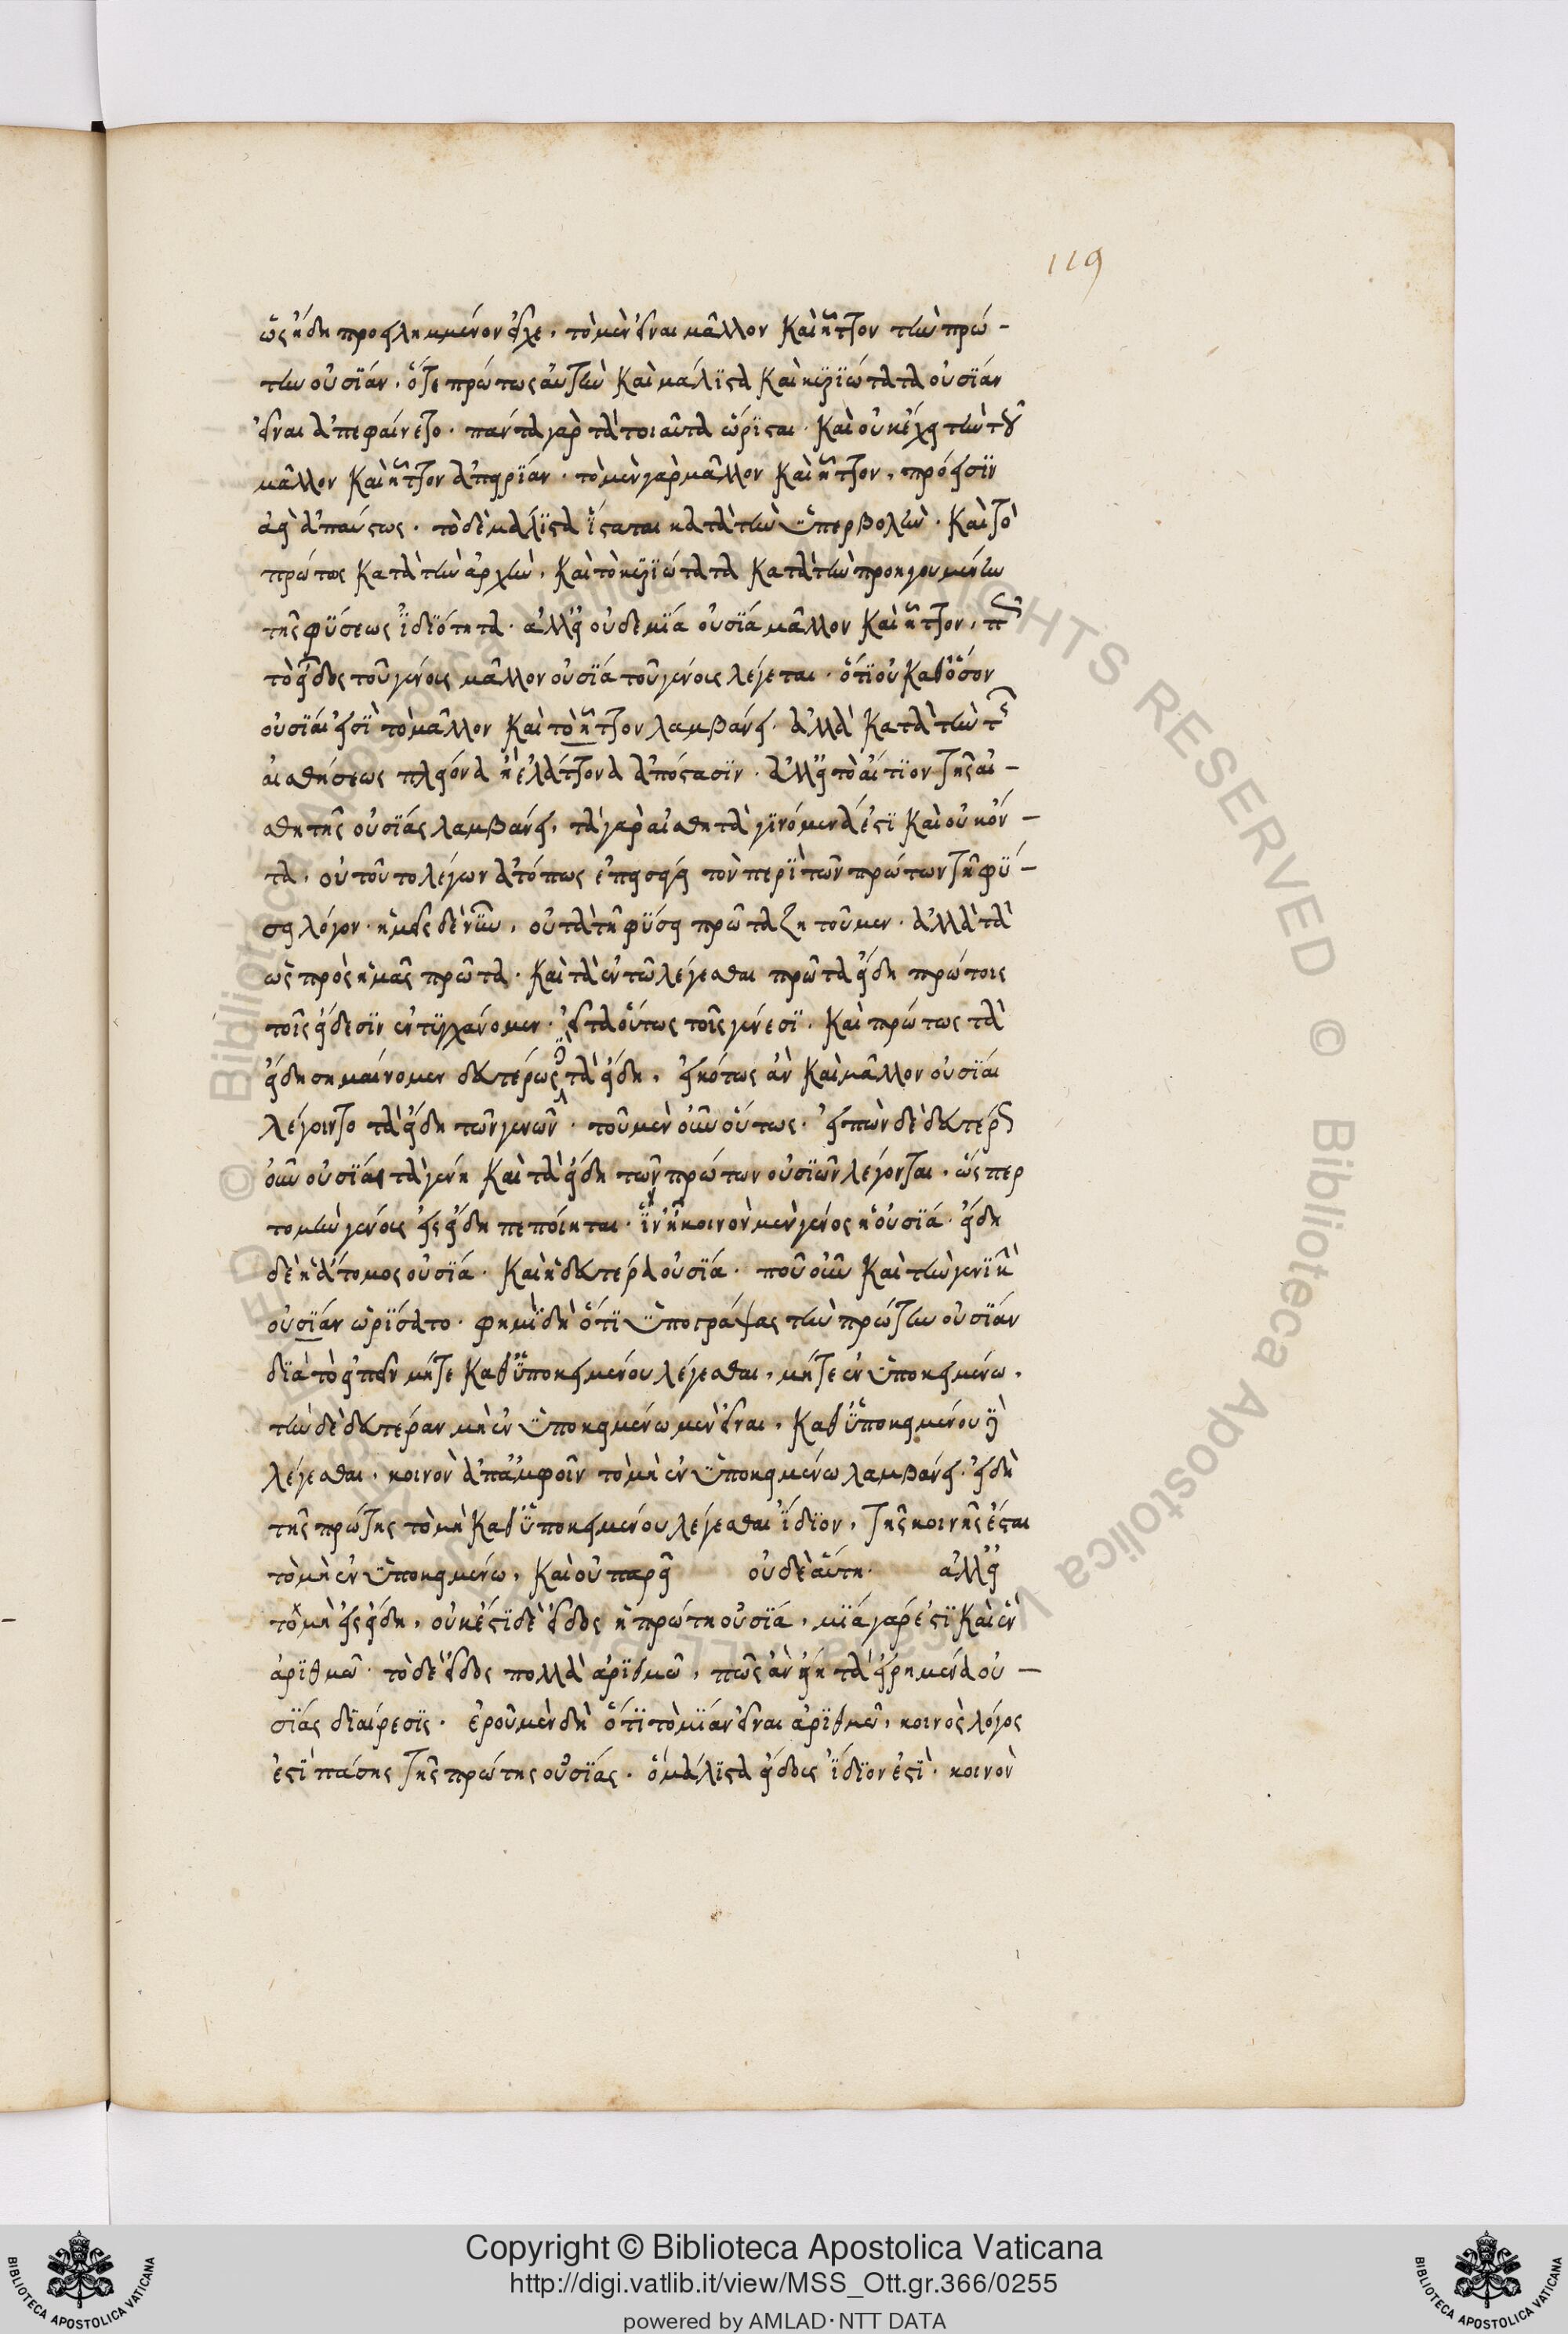 119
ὡς ἤδη προσειλημμένον εἶχε, τὸ μὲν εἶναι μᾶλλον καὶ ἧττον τὴν πρώ-
την οὐσίαν, ὅτε πρώτως αὐτὴν καὶ μάλιστα καὶ κυριώτατα οὐσίαν
εἶναι ἀπεφαίνετο. πάντα γὰρ τὰ τοιαῦτα ὥρισται. καὶ οὐκ ἔχει τὴν τοῦ
μᾶλλον καὶ ἧττον ἀπειρίαν. τὸ μὲν γὰρ μᾶλλον καὶ ἧττον, πρόεισιν
ἀεὶ ἀπαύστως. τὸ δὲ μάλιστα ἵσταται κατὰ τὴν ὑπερβολὴν. καὶ τὸ
πρώτως κατὰ τὴν ἀρχὴν, καὶ τὸ κυριώτατα κατὰ τὴν προηγουμένην
τῆς φύσεως ἰδιότητα. ἀλλ' εἰ οὐδεμία οὐσία μᾶλλον καὶ ἧττον, πῶς
τὸ εἶδος τοῦ γένους μᾶλλον οὐσία τοῦ γένους λέγεται. ὅτι οὐ καθόσον
οὐσίαι εἰσὶ τὸ μᾶλλον καὶ τὸ ἧττον λαμβάνει. ἀλλὰ κατὰ τὴν τῆς
αἰσθήσεως πλείονα ἢ ἐλάττονα ἀπόστασιν. ἀλλ' εἰ τὸ αἴτιον τῆς αἰ-
σθητῆς οὐσίας λαμβάνει, τὰ γὰρ αἰσθητὰ γινόμενά ἐστι καὶ οὐκ ὄν-
τα, οὐ τοῦτο λέγων ἀτόπως ἐπεισάγει τὸν περὶ τῶν πρώτων τῇ φύ-
σει λόγον. ἡμεῖς δὲ νῦν, οὐ τὰ τῇ φύσει πρῶτα ζητοῦμεν. ἀλλὰ τὰ
ὡς πρὸς ἡμᾶς πρῶτα. καὶ τὰ ἐν τῶ λέγεσθαι πρῶτα εἴδη πρώτοις
τοῖς εἴδεσιν ἐντυγχάνομεν. εἶτα οὕτως τοῖς γένεσι. καὶ πρώτως τὰ
εἴδη σημαίνομεν δευτέρως τὰ εἴδη, εἰκότως ἂν καὶ μᾶλλον οὐσίαι
λέγοιντο τὰ εἴδη τῶν γενῶν. τοῦ μὲν οὖν οὕτως. εἰπὼν δὲ δευτέρας
οὖν οὐσίας τὰ γένη καὶ τὰ εἴδη τῶν πρώτων οὐσιῶν λέγονται, ὥσπερ
τομὴν γένους εἰς εἴδη πεποίηται. ἵν' ᾖ κοινὸν μὲν γένος ἡ οὐσία. εἴδη
δὲ ἡ ἄτομος οὐσία. καὶ ἡ δευτέρα οὐσία. ποῦ οὖν καὶ τὴν γενικὴν
οὐσίαν ὡρίσατο. φημὶ δὴ ὅτι ὑπογράψας τὴν πρώτην οὐσίαν
διὰ τὸ εἰπεῖν μήτε καθ' ὑποκειμένου λέγεσθαι, μήτε ἐν ὑποκειμένω,
τὴν δὲ δευτέραν μὴ ἐν ὑποκειμένω μὲν εἶναι, καθ' ὑποκειμένου δὲ
λέγεσθαι, κοινὸν ἀπ' ἀμφοῖν τὸ μὴ ἐν ὑποκειμένω λαμβάνει. εἰ δὴ
τῆς πρώτης τὸ μὴ καθ' ὑποκειμένου λέγεσθαι ἴδιον, τῆς κοινῆς ἔσται
τὸ μὴ ἐν ὑποκειμένω, καὶ οὐ παρεῖ οὐδὲ αὕτη. ἀλλ' εἰ
τομὴ εἰς εἴδη, οὐκ ἔστι δὲ εἶδος ἡ πρώτη οὐσία, μία γάρ ἐστι καὶ ἓν
ἀριθμῶ. τὸ δὲ εἶδος πολλὰ ἀριθμῶ, πῶς ἂν εἴη τὰ εἰρημένα οὐ-
σίας διαίρεσις. ἐροῦμεν δὴ ὅτι τὸ μίαν εἶναι ἀριθμῶ, κοινὸς λόγος
ἐστὶ πάσης τῆς πρώτης οὐσίας. ὃ μάλιστα εἴδους ἴδιον ἐστὶ. κοινὸν
Copyright © Biblioteca Apostolica Vaticana
http://digi.vatlib.it/view/MSS_Ott.gr.366/0255
powered by AMLAD·NTT DATA